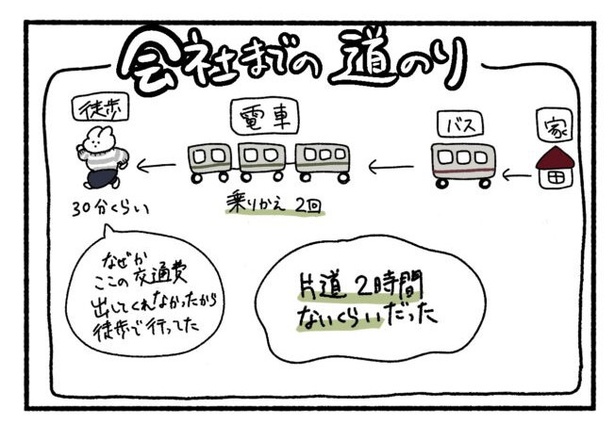 会社までの道のり
徒歩
電車
バス
家
30分くらい
乗りかえ 2回
なぜか
ここの交通費
出してくれなかったから
徒歩で行ってた
片道 2時間
ないくらいだった